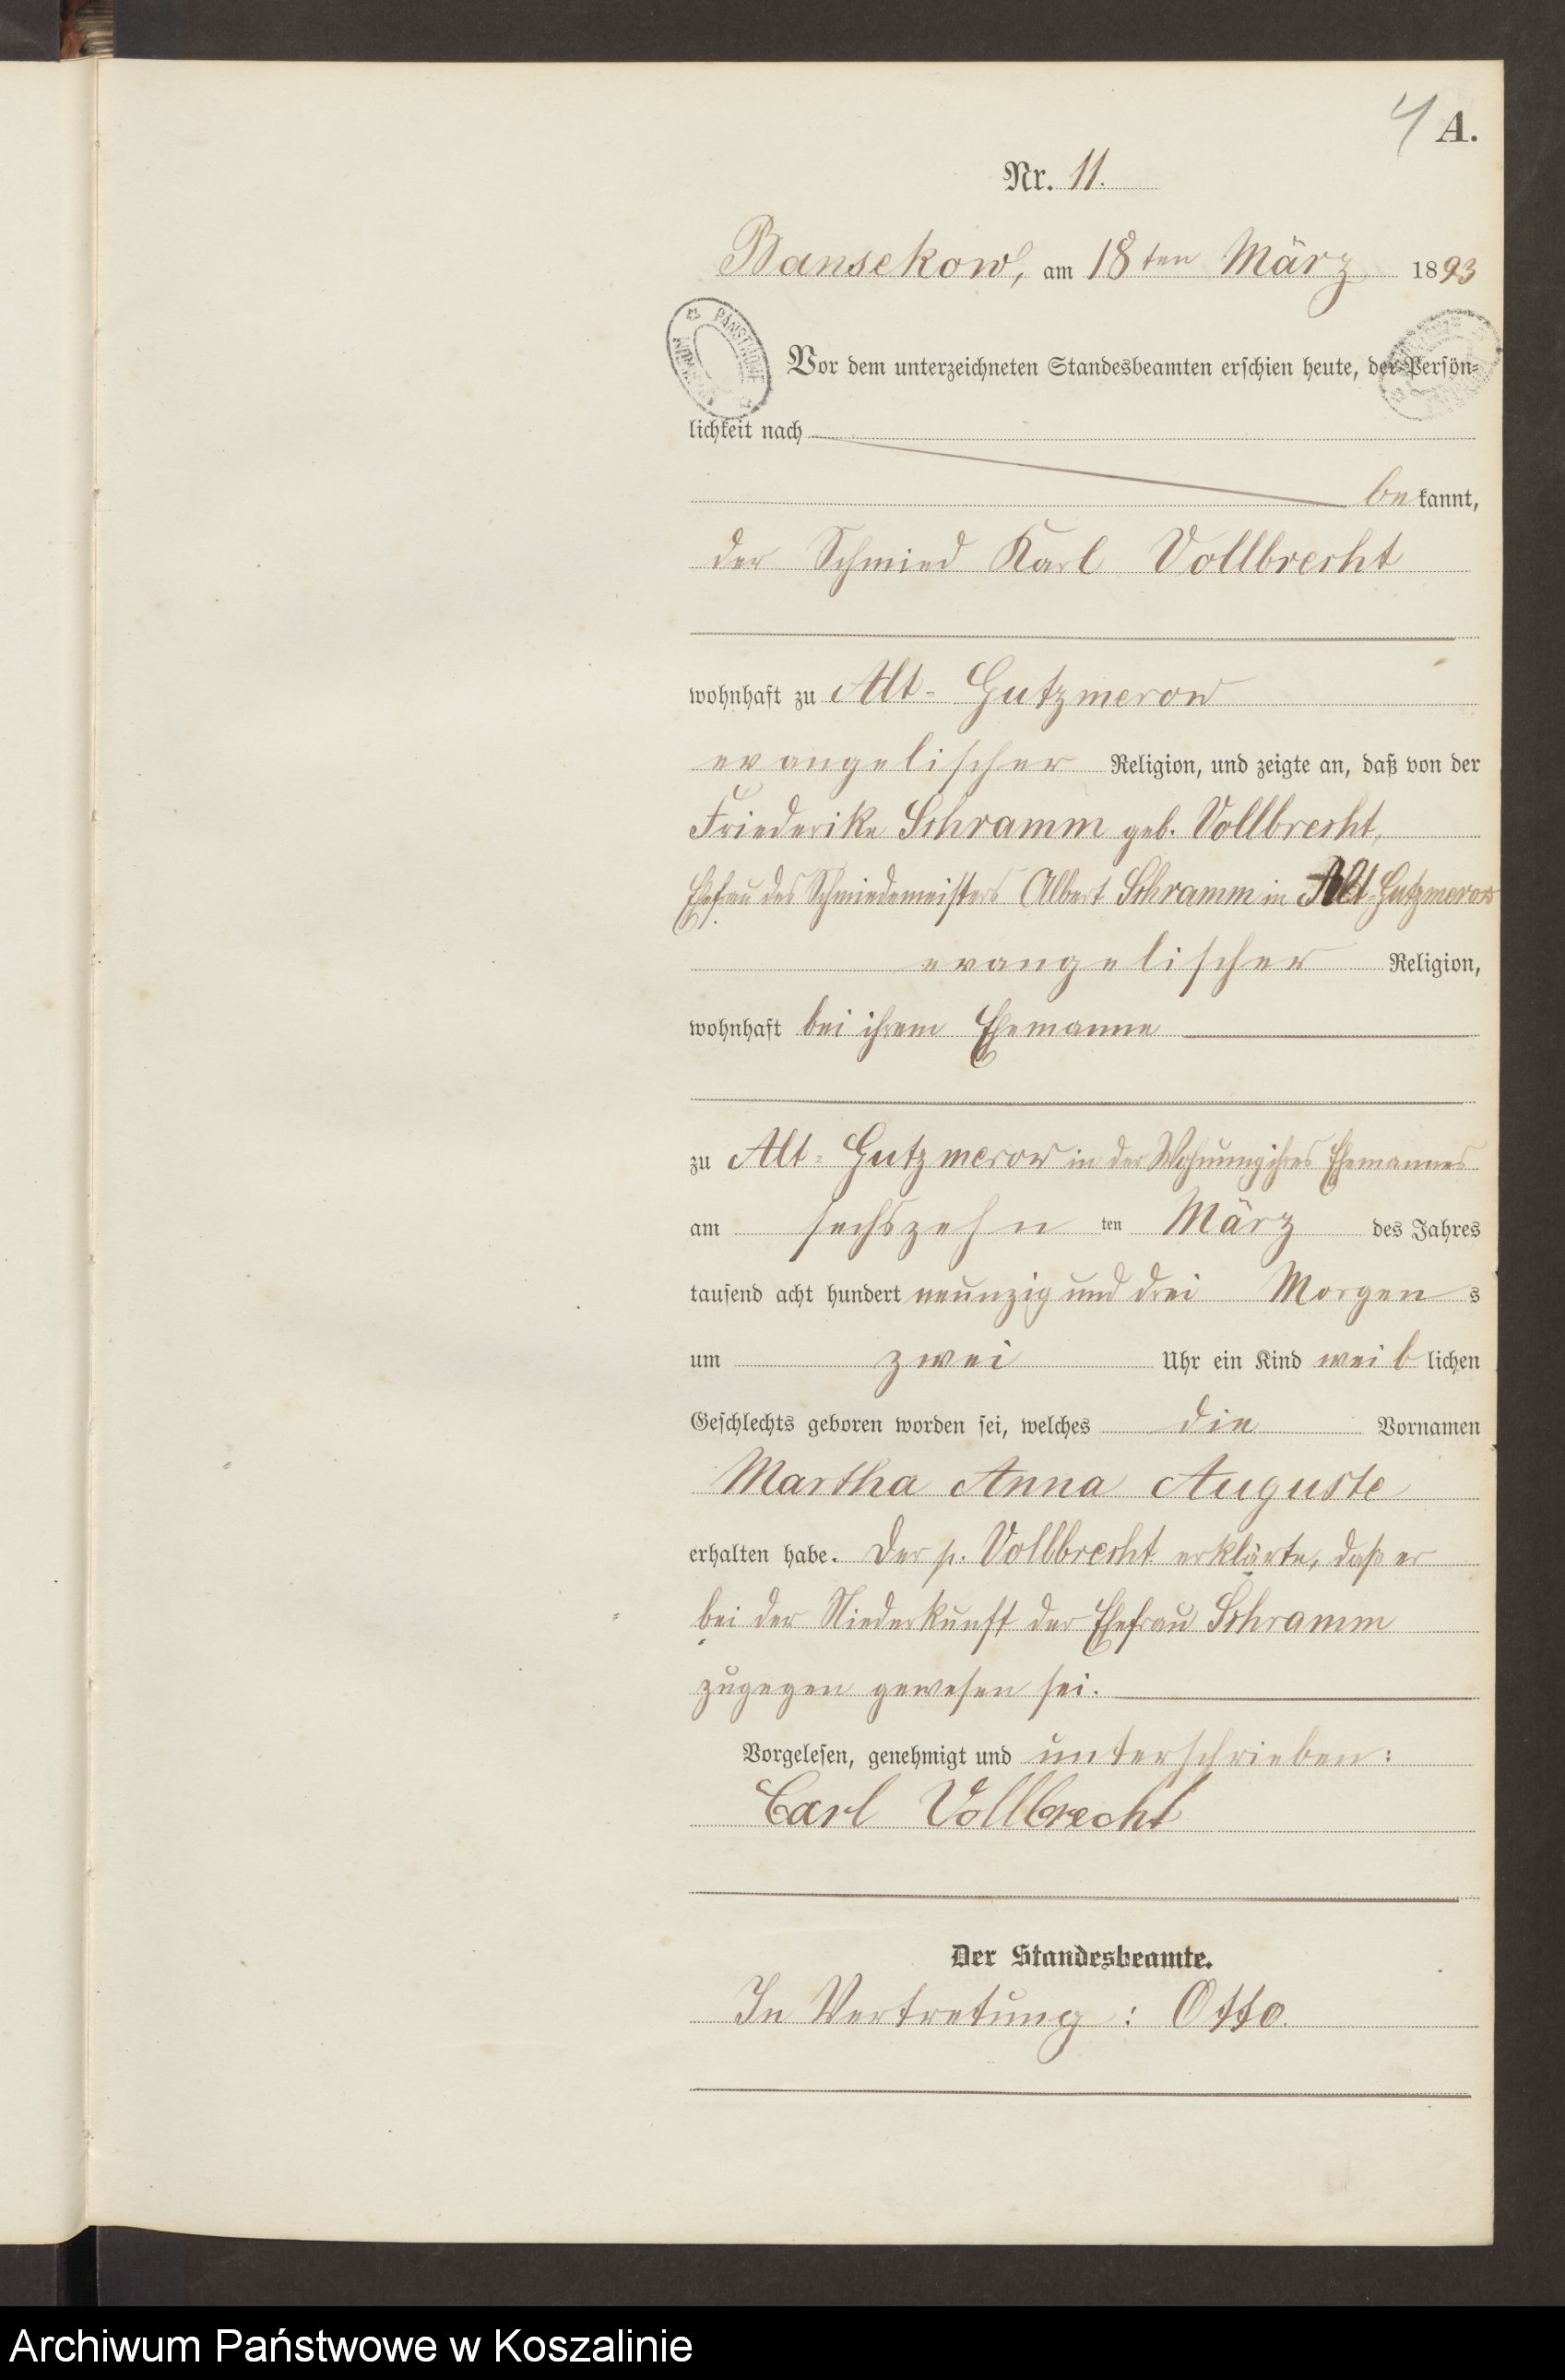 4 A.
Nr. 11.
Bansekow, am 18ten März 1893
Vor dem unterzeichneten Standesbeamten erschien heute, der Persön-
lichkeit nach
bekannt,
der Schmied Karl Vollbrecht
wohnhaft zu Alt-Gutzmerow
evangelischer Religion, und zeigte an, daß von der
Friederike Schramm geb. Vollbrecht,
Ehefrau des Schmiedemeisters Albert Schramm in Alt-Gutzmerow
evangelischer Religion,
wohnhaft bei ihrem Ehemanne
zu Alt-Gutzmerow in der Wohnung ihres Ehemannes
am sechszehn ten März des Jahres
tausend acht hundert neunzig und drei Morgens
um zwei Uhr ein Kind weiblichen
Geschlechts geboren worden sei, welches die Vornamen
Martha Anna Auguste
erhalten habe. Der p. Vollbrecht erklärte, daß er
bei der Niederkunft der Ehefrau Schramm
zugegen gewesen sei.
Vorgelesen, genehmigt und unterschrieben:
Carl Vollbrecht
Der Standesbeamte.
In Vertretung: Otto.
Archiwum Państwowe w Koszalinie